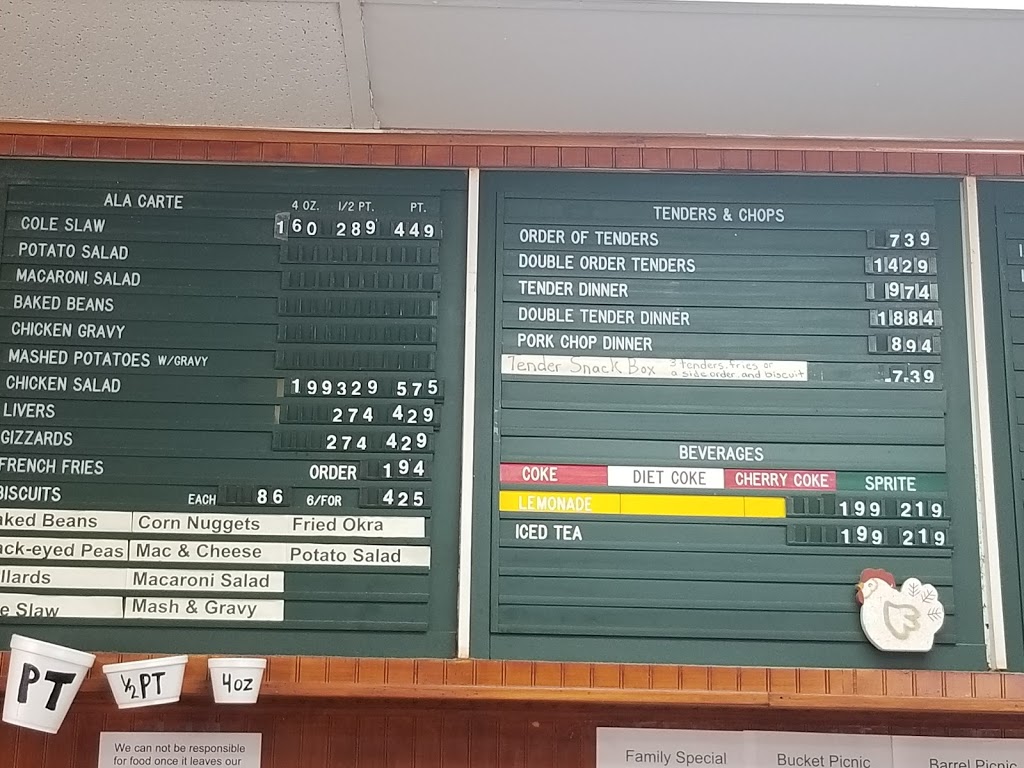 ALA CARTE 4 OZ. 1/2 PT. PT.
COLE SLAW 160 289 449
POTATO SALAD
MACARONI SALAD
BAKED BEANS
CHICKEN GRAVY
MASHED POTATOES W/GRAVY
CHICKEN SALAD 199 329 575
LIVERS 274 429
GIZZARDS 274 429
FRENCH FRIES ORDER 194
BISCUITS EACH 86 6/FOR 425
aked Beans Corn Nuggets Fried Okra
ack-eyed Peas Mac & Cheese Potato Salad
llards Macaroni Salad
e Slaw Mash & Gravy
PT 1/2 PT 4oz
We can not be responsible
for food once it leaves our
TENDERS & CHOPS
ORDER OF TENDERS 739
DOUBLE ORDER TENDERS 1429
TENDER DINNER 974
DOUBLE TENDER DINNER 1884
PORK CHOP DINNER 894
Tender Snack Box 3 tenders, fries or
a side order and biscuit 739
BEVERAGES
COKE DIET COKE CHERRY COKE SPRITE
LEMONADE 199 219
ICED TEA 199 219
Family Special
Bucket Picnic
Barrel Picnic